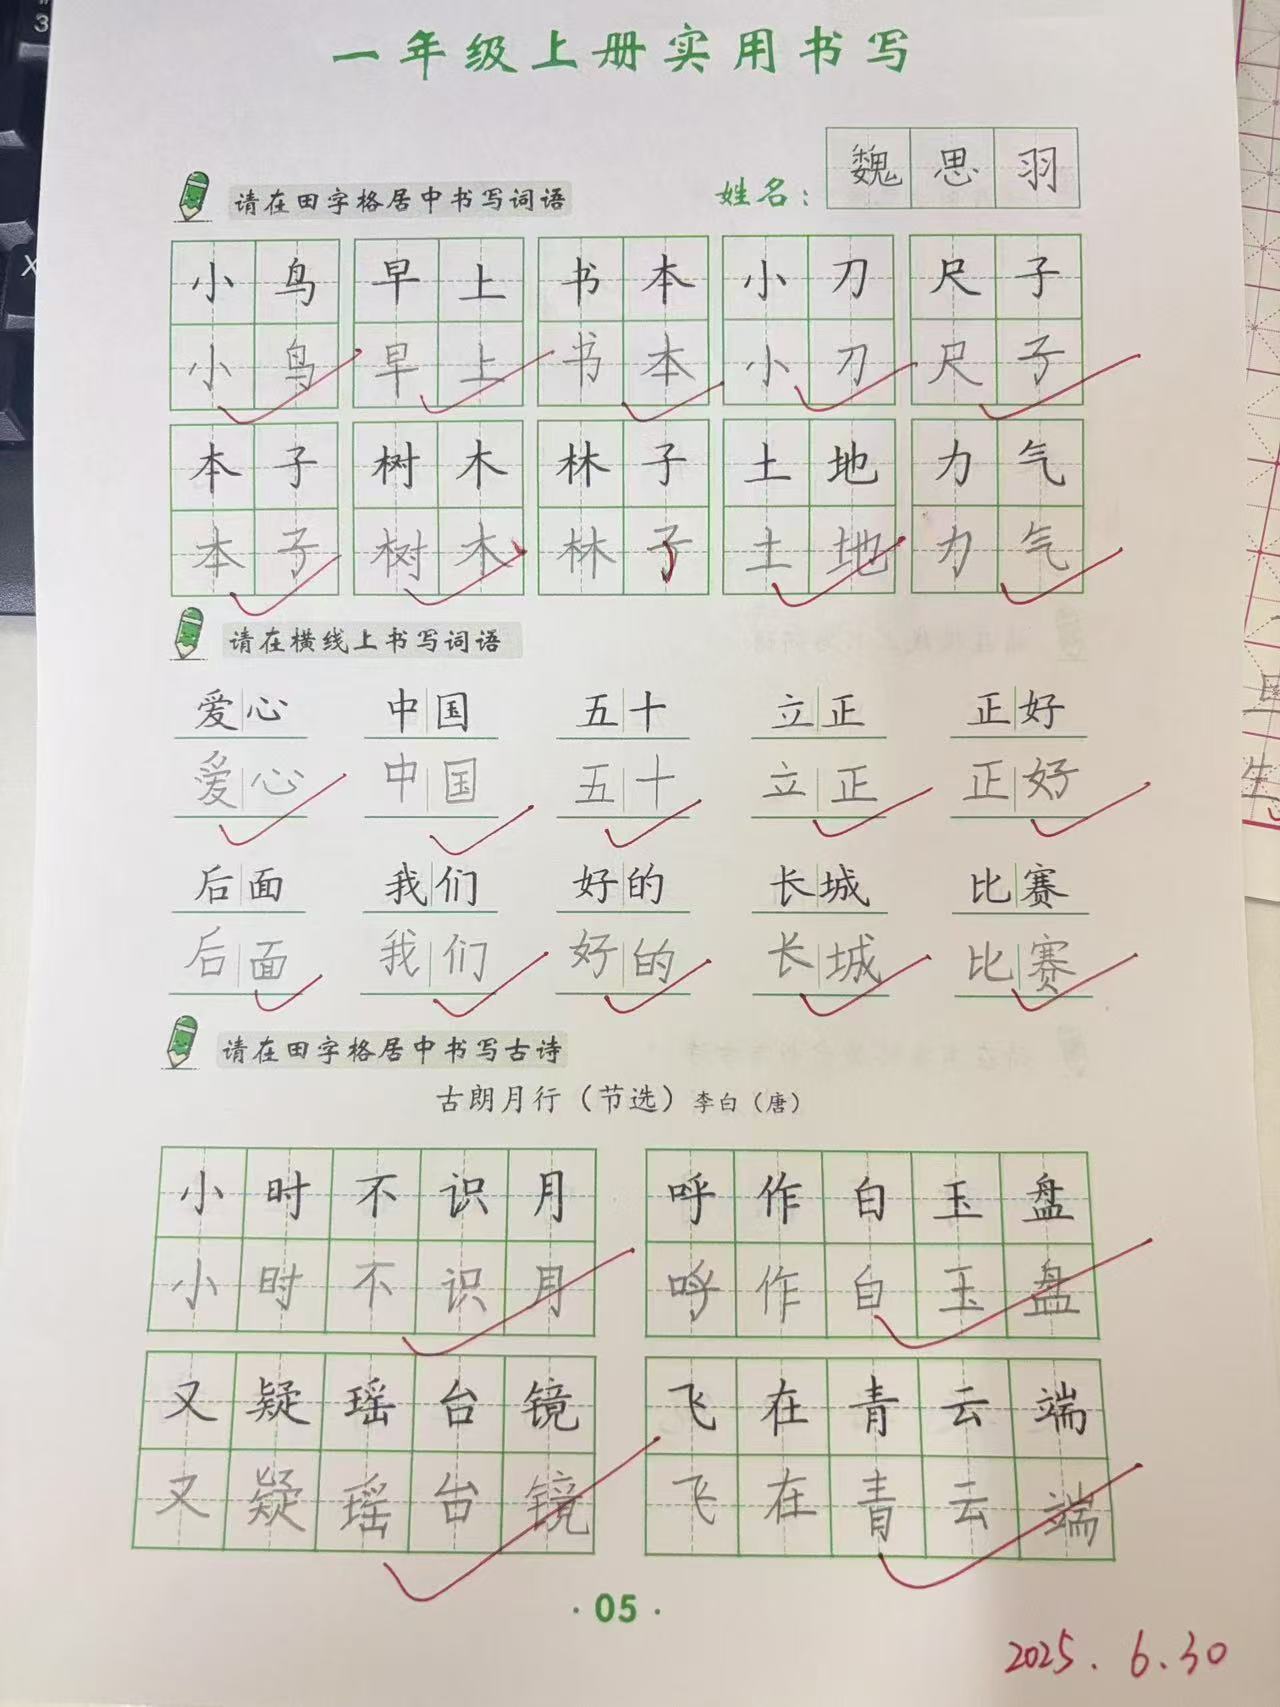 一年级上册实用书写
姓名：魏思羽
请在田字格居中书写词语
小鸟 早上 书本 小刀 尺子
小鸟 早上 书本 小刀 尺子
本子 树木 林子 土地 力气
本子 树木 林子 土地 力气
请在横线上书写词语
爱心 中国 五十 立正 正好
爱心 中国 五十 立正 正好
后面 我们 好的 长城 比赛
后面 我们 好的 长城 比赛
请在田字格居中书写古诗
古朗月行（节选）李白（唐）
小时不识月 呼作白玉盘
小时不识月 呼作白玉盘
又疑瑶台镜 飞在青云端
又疑瑶台镜 飞在青云端
·05·
2025.6.30